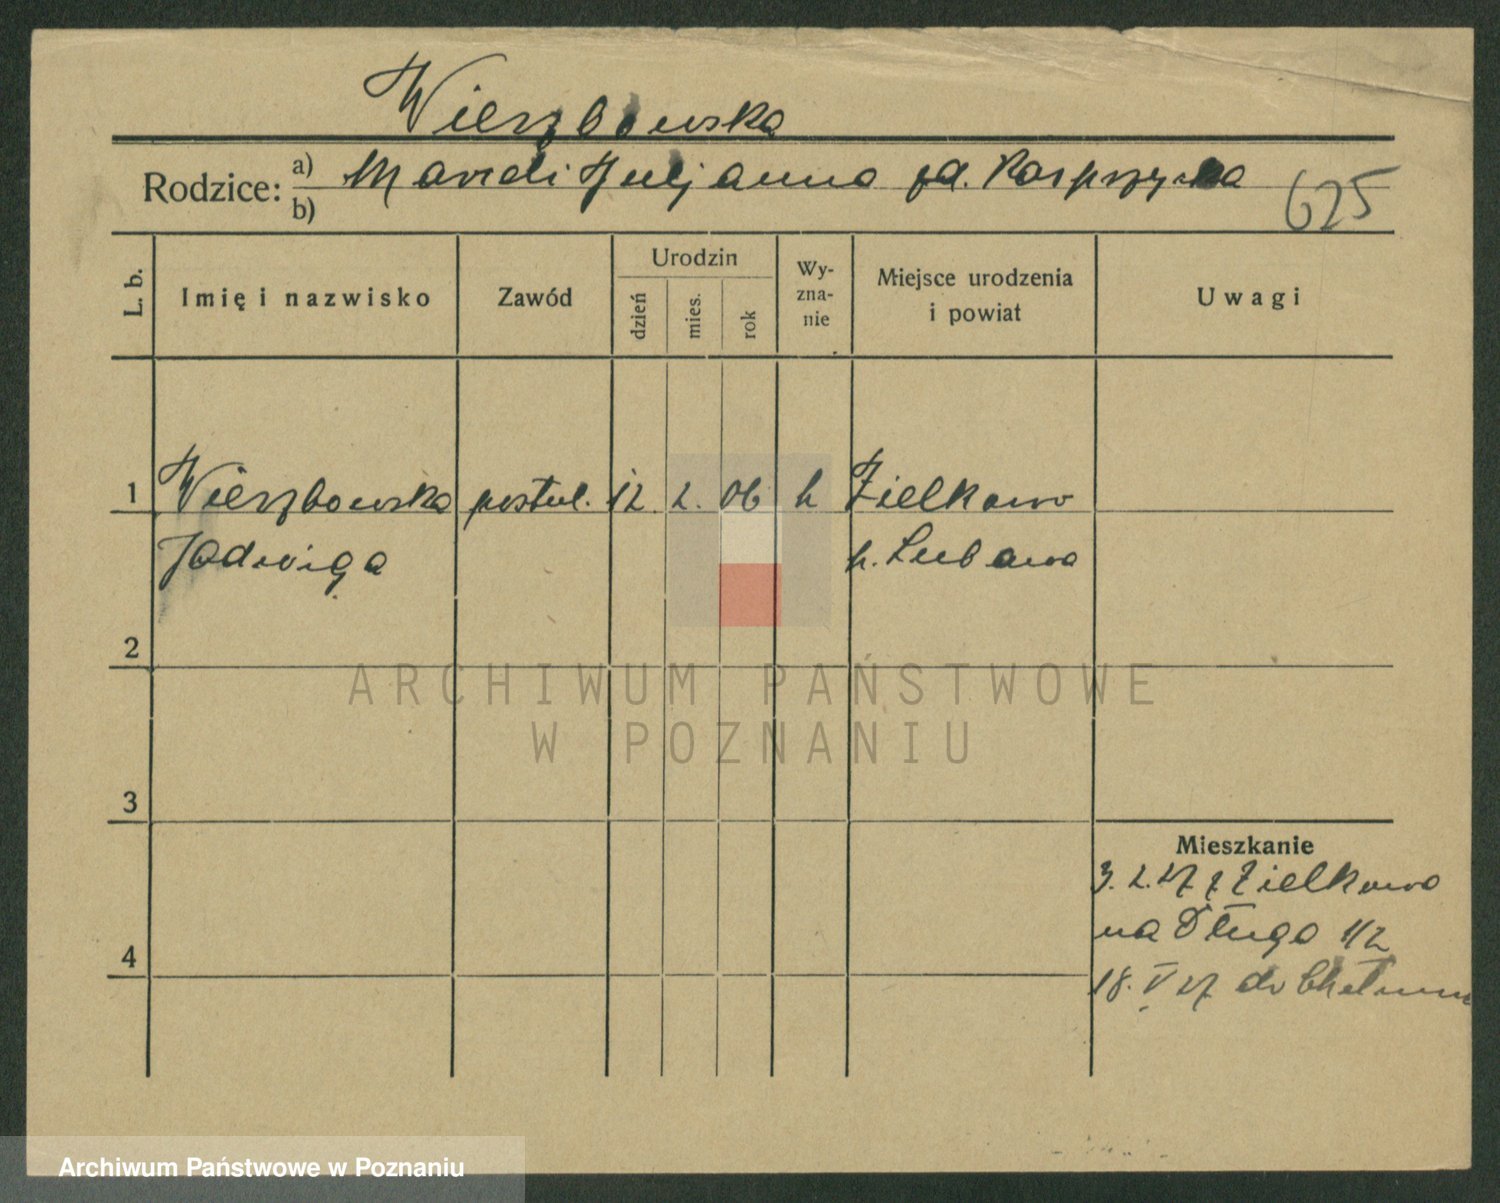 Wierzbowska
Rodzice: a) Marceli Juljanna zd. Kasprzycka
b)
625
L. b.
Imię i nazwisko
Zawód
Urodzin
dzień
mies.
rok
Wy-
zna-
nie
Miejsce urodzenia
i powiat
Uwagi
1 Wierzbowska postul. 12. 2. 06 k Zielkowo
Jadwiga p. Lubawa
2
3
4
Mieszkanie
3. 2. 27 z Zielkowo
na Długa 1/2
18. V 27 do Chełmna
ARCHIWUM PAŃSTWOWE
W POZNANIU
Archiwum Państwowe w Poznaniu